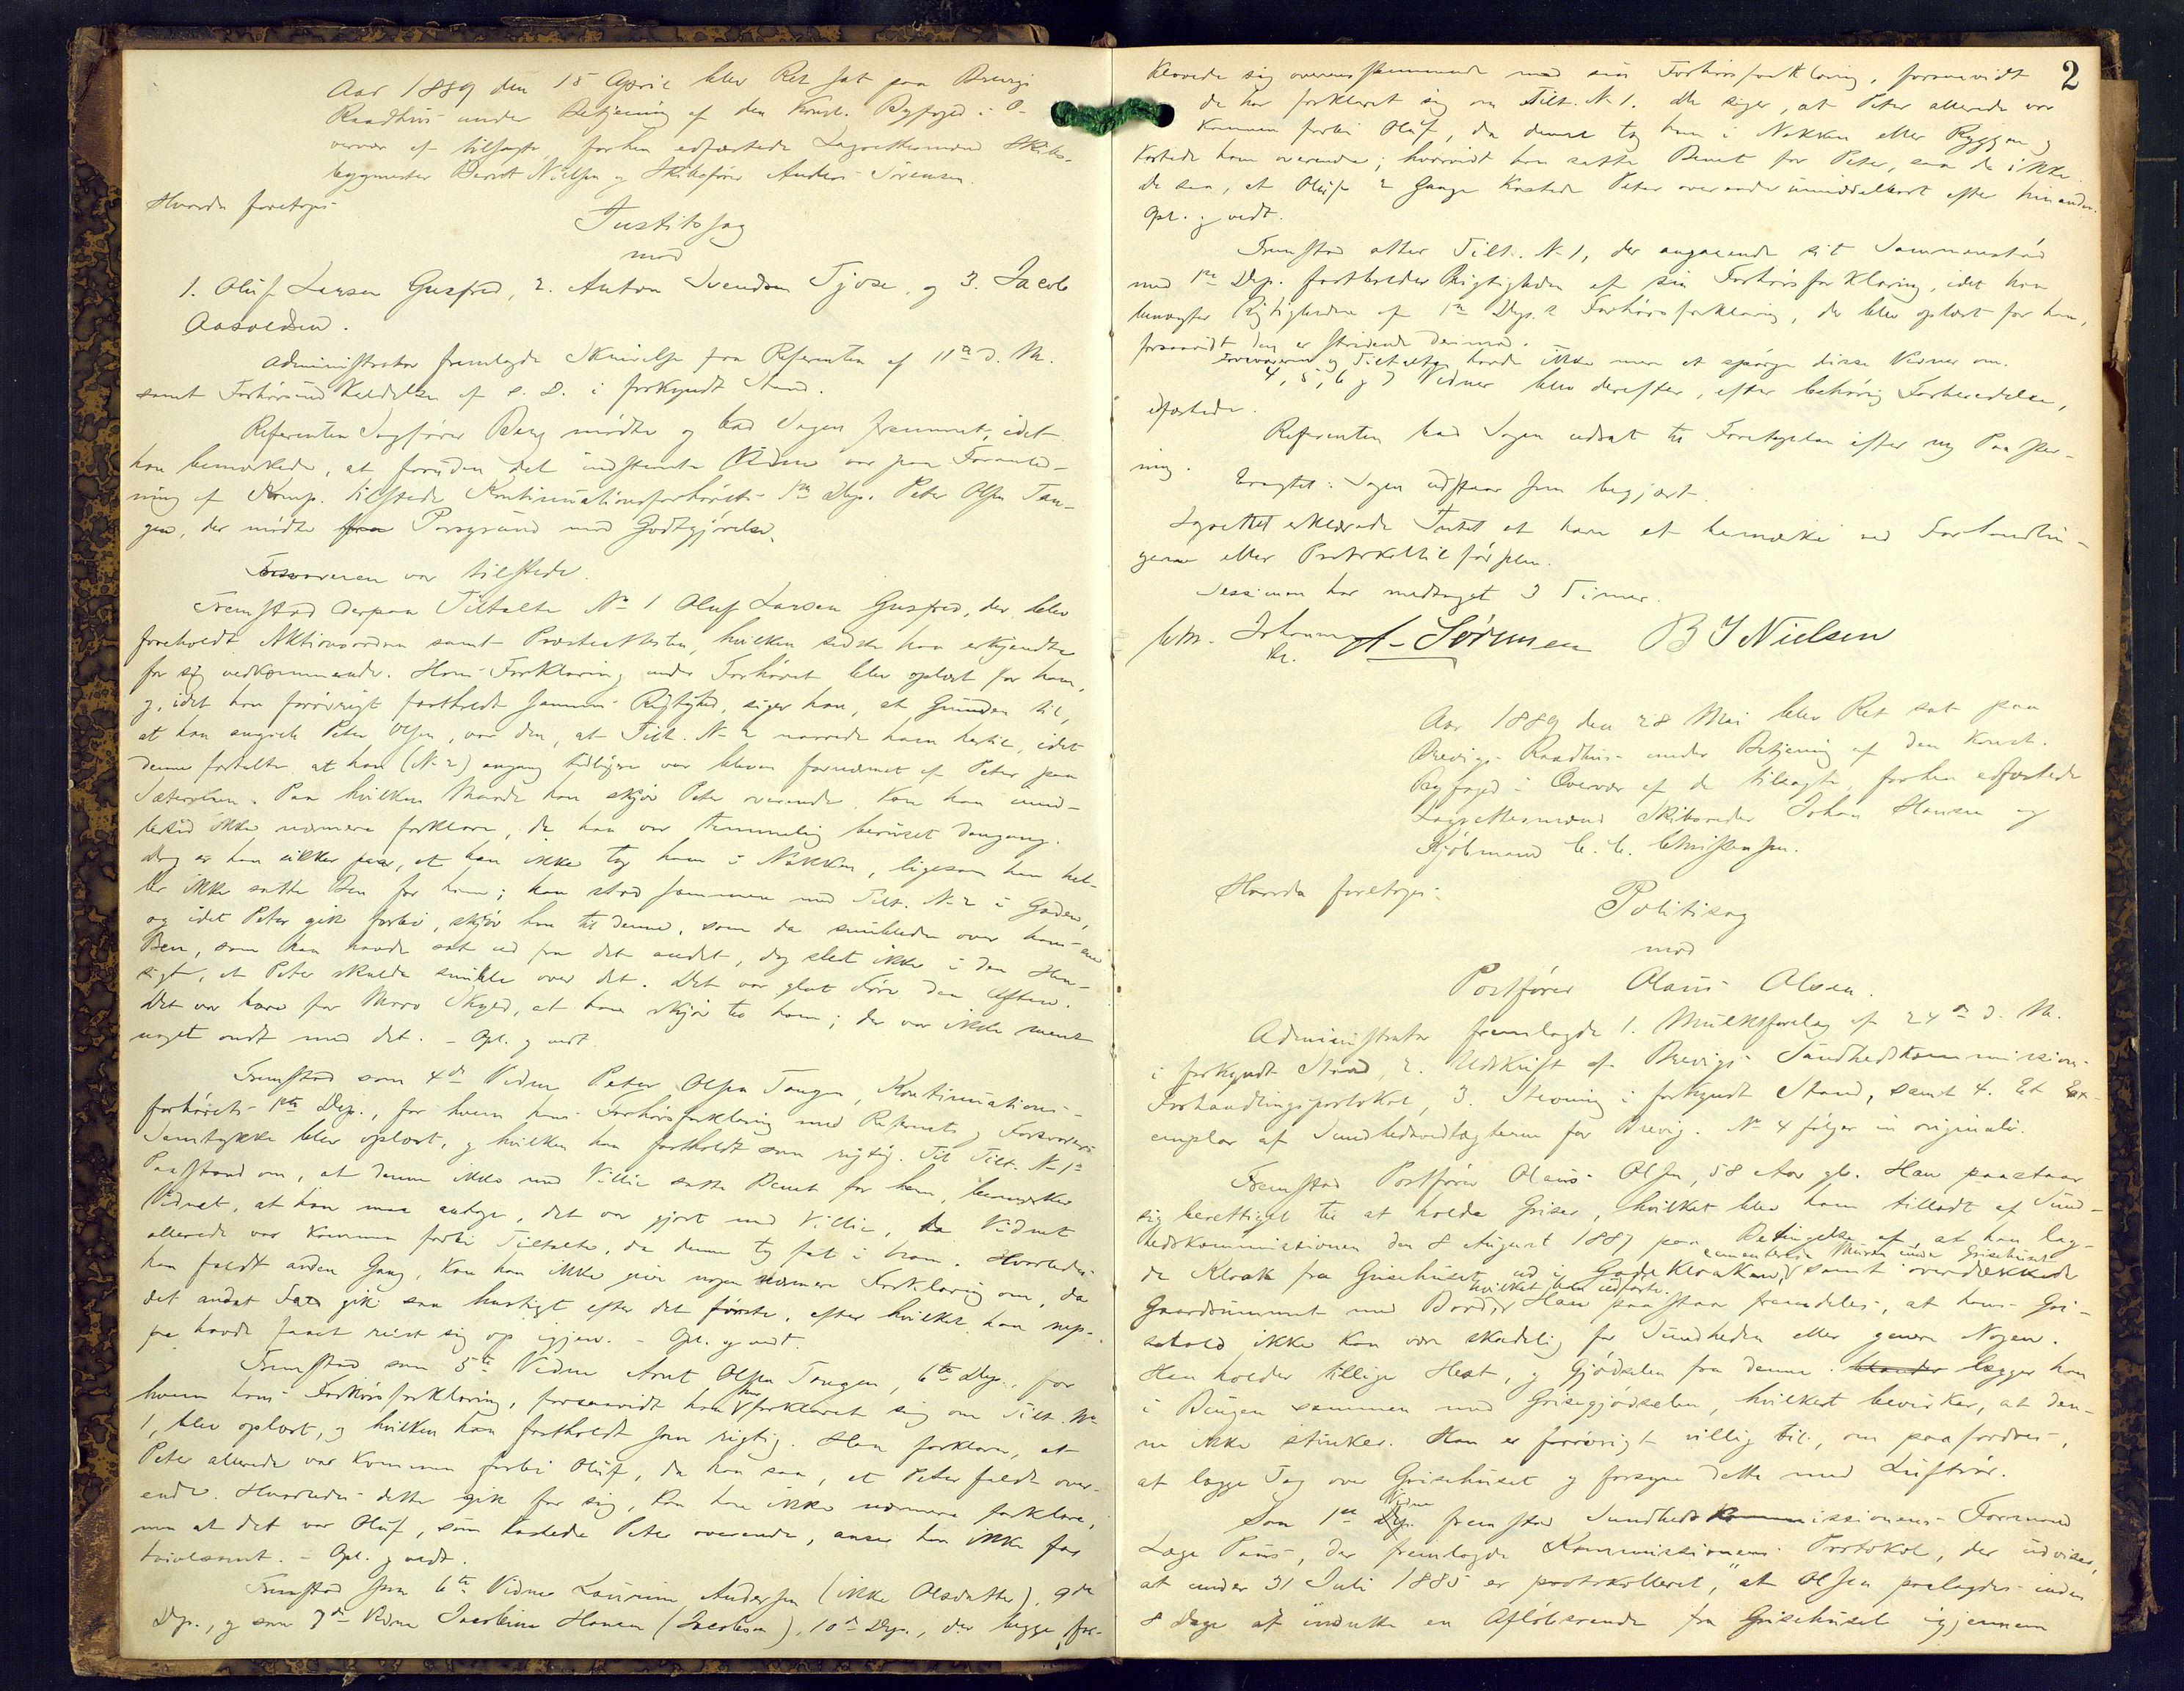 Aar 1889 den 15 April blev Ret sat paa Brevigs
Raadhus under Betjening af den Konst. Byfoged i O-
vervær af tilsagte, forhen edfæstede Lagrettesmænd Skibs-
bygmester Berent Nielsen og Skibsfører Anders Sørensen.
Hvorda foretoges
Justitssag
mod
1. Oluf Larsen Gusfred, 2. Anton Svendsen Tjose, og 3. Jacob
Aasoldsen.
Administrator fremlagde Skrivelse fra Referenten af 11te d. M.
samt Forhørsindkaldelse af s. D. i forkyndt Stand.
Referenten Sagfører Berg mødte og bad Sagen fremmet, idet
han bemærkede, at foruden det indstevnte Vidne var paa Foranled-
ning af Komp. tilstede Kontinuationsforhørets 1ste Dep. Peter Olsen Tan-
gen, der mødte fra Porsgrund mod Godtgjørelse.
Forsvareren var tilstede.
Fremstod derpaa Tiltalte No 1 Oluf Larsen Gusfred, der blev
foreholdt Aktionsordren samt Præsteattesten, hvilken sidste han erkjendte
for sig vedkommende. Hans Forklaring under Forhøret blev oplæst for ham,
og, idet han forøvrigt fastholdt sammes Rigtighed, siger han, at Grunden til,
at han angreb Peter Olsen, var den, at Tilt. No 2 narrede ham hertil, idet
denne fortalte at han (No 2) engang tidligere var bleven fornærmet af Peter paa
Sæterøen. Paa hvilken Maade han skjøv Peter overende, kan han imid-
lertid ikke nærmere forklare, da han var temmelig beruset dengang.
Dog er han sikker paa, at han ikke tog ham i Nakken, ligesom han hel-
ler ikke satte Ben for ham; han stod sammen med Tilt. No 2 i Gaden,
og idet Peter gik forbi, skjøv han til denne, som da snublede over hans ene
Ben, som han havde sat ud fra det andet, dog slet ikke i den Hen-
sigt, at Peter skulde snuble over det. Det var glat Føre den Aften.
Det var bare for Moro Skyld, at han skjøv til ham; der var ikke ment
noget ondt med det. - Opl. og vedt.
Fremstod som 4de Vidne Peter Olsen Tangen, Kontinuations-
forhørets 1ste Dep., for hvem hans Forhørsforklaring med Referents og Forsvarers
Samtykke blev oplæst, og hvilken han fastholdt som rigtig. Til Tilt. No 1s
Paastand om, at denne ikke med Villie satte Benet for ham, bemærker
Vidnet, at han maa antage, det var gjort med Villie, da Vidnet
allerede var kommen forbi Tiltalte, da denne tog fat i ham. Hvorledes
han faldt anden Gang, kan han ikke give nogen nærmere Forklaring om, da
det andet Fald gik saa hurtigt efter det første, efter hvilket han nep-
pe havde faaet reist sig op igjen. - Opl. og vedt.
Fremstod som 5te Vidne Arnt Olsen Tangen, 6te Dep., for
hvem hans Forhørsforklaring, forsaavidt han har forklaret sig om Tilt. No
1, blev oplæst, og hvilken han fastholdt som rigtig. Han forklarer, at
Peter allerede var kommen forbi Oluf, da han saa, at Peter faldt over-
ende. Hvorledes dette gik for sig, kan han ikke nærmere forklare,
men at det var Oluf, som kastede Peter overende, anser han ikke for
tvivlsomt. - Opl. og vedt.
Fremstod som 6te Vidne Laurine Andersen (ikke Olsdatter), 9de
Dep., og som 7de Vidne Jacobine Hansen (Jacobsen), 10de Dep., der begge for-
2
klarede sig overensstemmende med sin Forhørsforklaring, forsaavidt
de har forklaret sig om Tilt. No 1. De siger, at Peter allerede var
kommen forbi Oluf, da denne tog ham i Nakken eller Ryggen og
kastede ham overende; hvorvidt han satte Benet for Peter, saa de ikke.
De saa, at Oluf 2 Gange kastede Peter overende umiddelbart efter hinanden.
Opl. og vedt.
Fremstod atter Tilt. No 1, der angaaende sit Sammenstød
med 1ste Dep. fastholder Rigtigheden af sin Forhørsforklaring, idet han
benegter Rigtigheden af 1ste Dep.s Forhørsforklaring, der blev oplæst for ham,
forsaavidt den er stridende derimod.
Forsvareren og Tiltalte havde ikke mere at spørge disse Vidner om.
4, 5, 6 og 7 Vidner blev derefter, efter behørig Forberedelse,
edfæstede.
Referenten bad Sagen udsat til Foretagelse efter ny Beram-
ning.
Eragtet: Sagen udstaar som begjært.
Lagrettet erklærede Intet at have at bemærke ved Forhandlin-
gerne eller Protokoltilførslen.
Sessionen har medtaget 3 Timer.
A. Sørensen B J Nielsen
Aar 1889 den 28 Mai blev Ret sat paa
Brevigs Raadhus under Betjening af den Konst.
Byfoged i Overvær af de tilsagte, forhen edfæstede
Lagrettesmænd Skibsreder Johan Hansen og
Kjøbmand C. C. Christensen.
Hvorda foretoges:
Politisag
mod
Postfører Olaus Olsen.
Administrator fremlagde 1. Mulktsforelæg af 24de d. M.
i forkyndt Stand, 2. Udskrift af Brevigs Sundhedskommissions
Forhandlingsprotokol, 3. Stevning i forkyndt Stand, samt 4. Et Ex-
emplar af Sundhedsvedtægterne for Brevig. No 4 følger in originali.
Fremstod Postfører Olaus Olsen, 58 Aar gl. Han paastaar
sig berettiget til at holde Griser, hvilket blev ham tilladt af Sund-
hedskommissionen den 8 August 1887 paa Betingelse af, at han lag-
de Kloak fra Grisehuset ud i Gadekloaken, cementerede Muren under Grisehuset samt overdækkede
Gaardsrummet med Bord, hvilket han udførte. Han paastaar fremdeles, at hans Gri-
sehold ikke kan være skadelig for Sundheden eller genere Nogen.
Han holder tillige Hest, og Gjødselen fra denne lægger han
i Bingen sammen med Grisegjødselen, hvilket bevirker, at den-
ne ikke stinker. Han er forøvrigt villig til, om paafordres,
at lægge Tag over Grisehuset og forsyne dette med Luftrør.
Som 1ste Vidne fremstod Sundhedskommissionens Formand
Læge Paus, der fremlagde Kommissionens Protokol, der udviser,
at under 31 Juli 1885 er protokolleret, "at Olsen paalagdes inden
8 Dage at indsætte en Afløbsrende fra Grisehuset igjennem